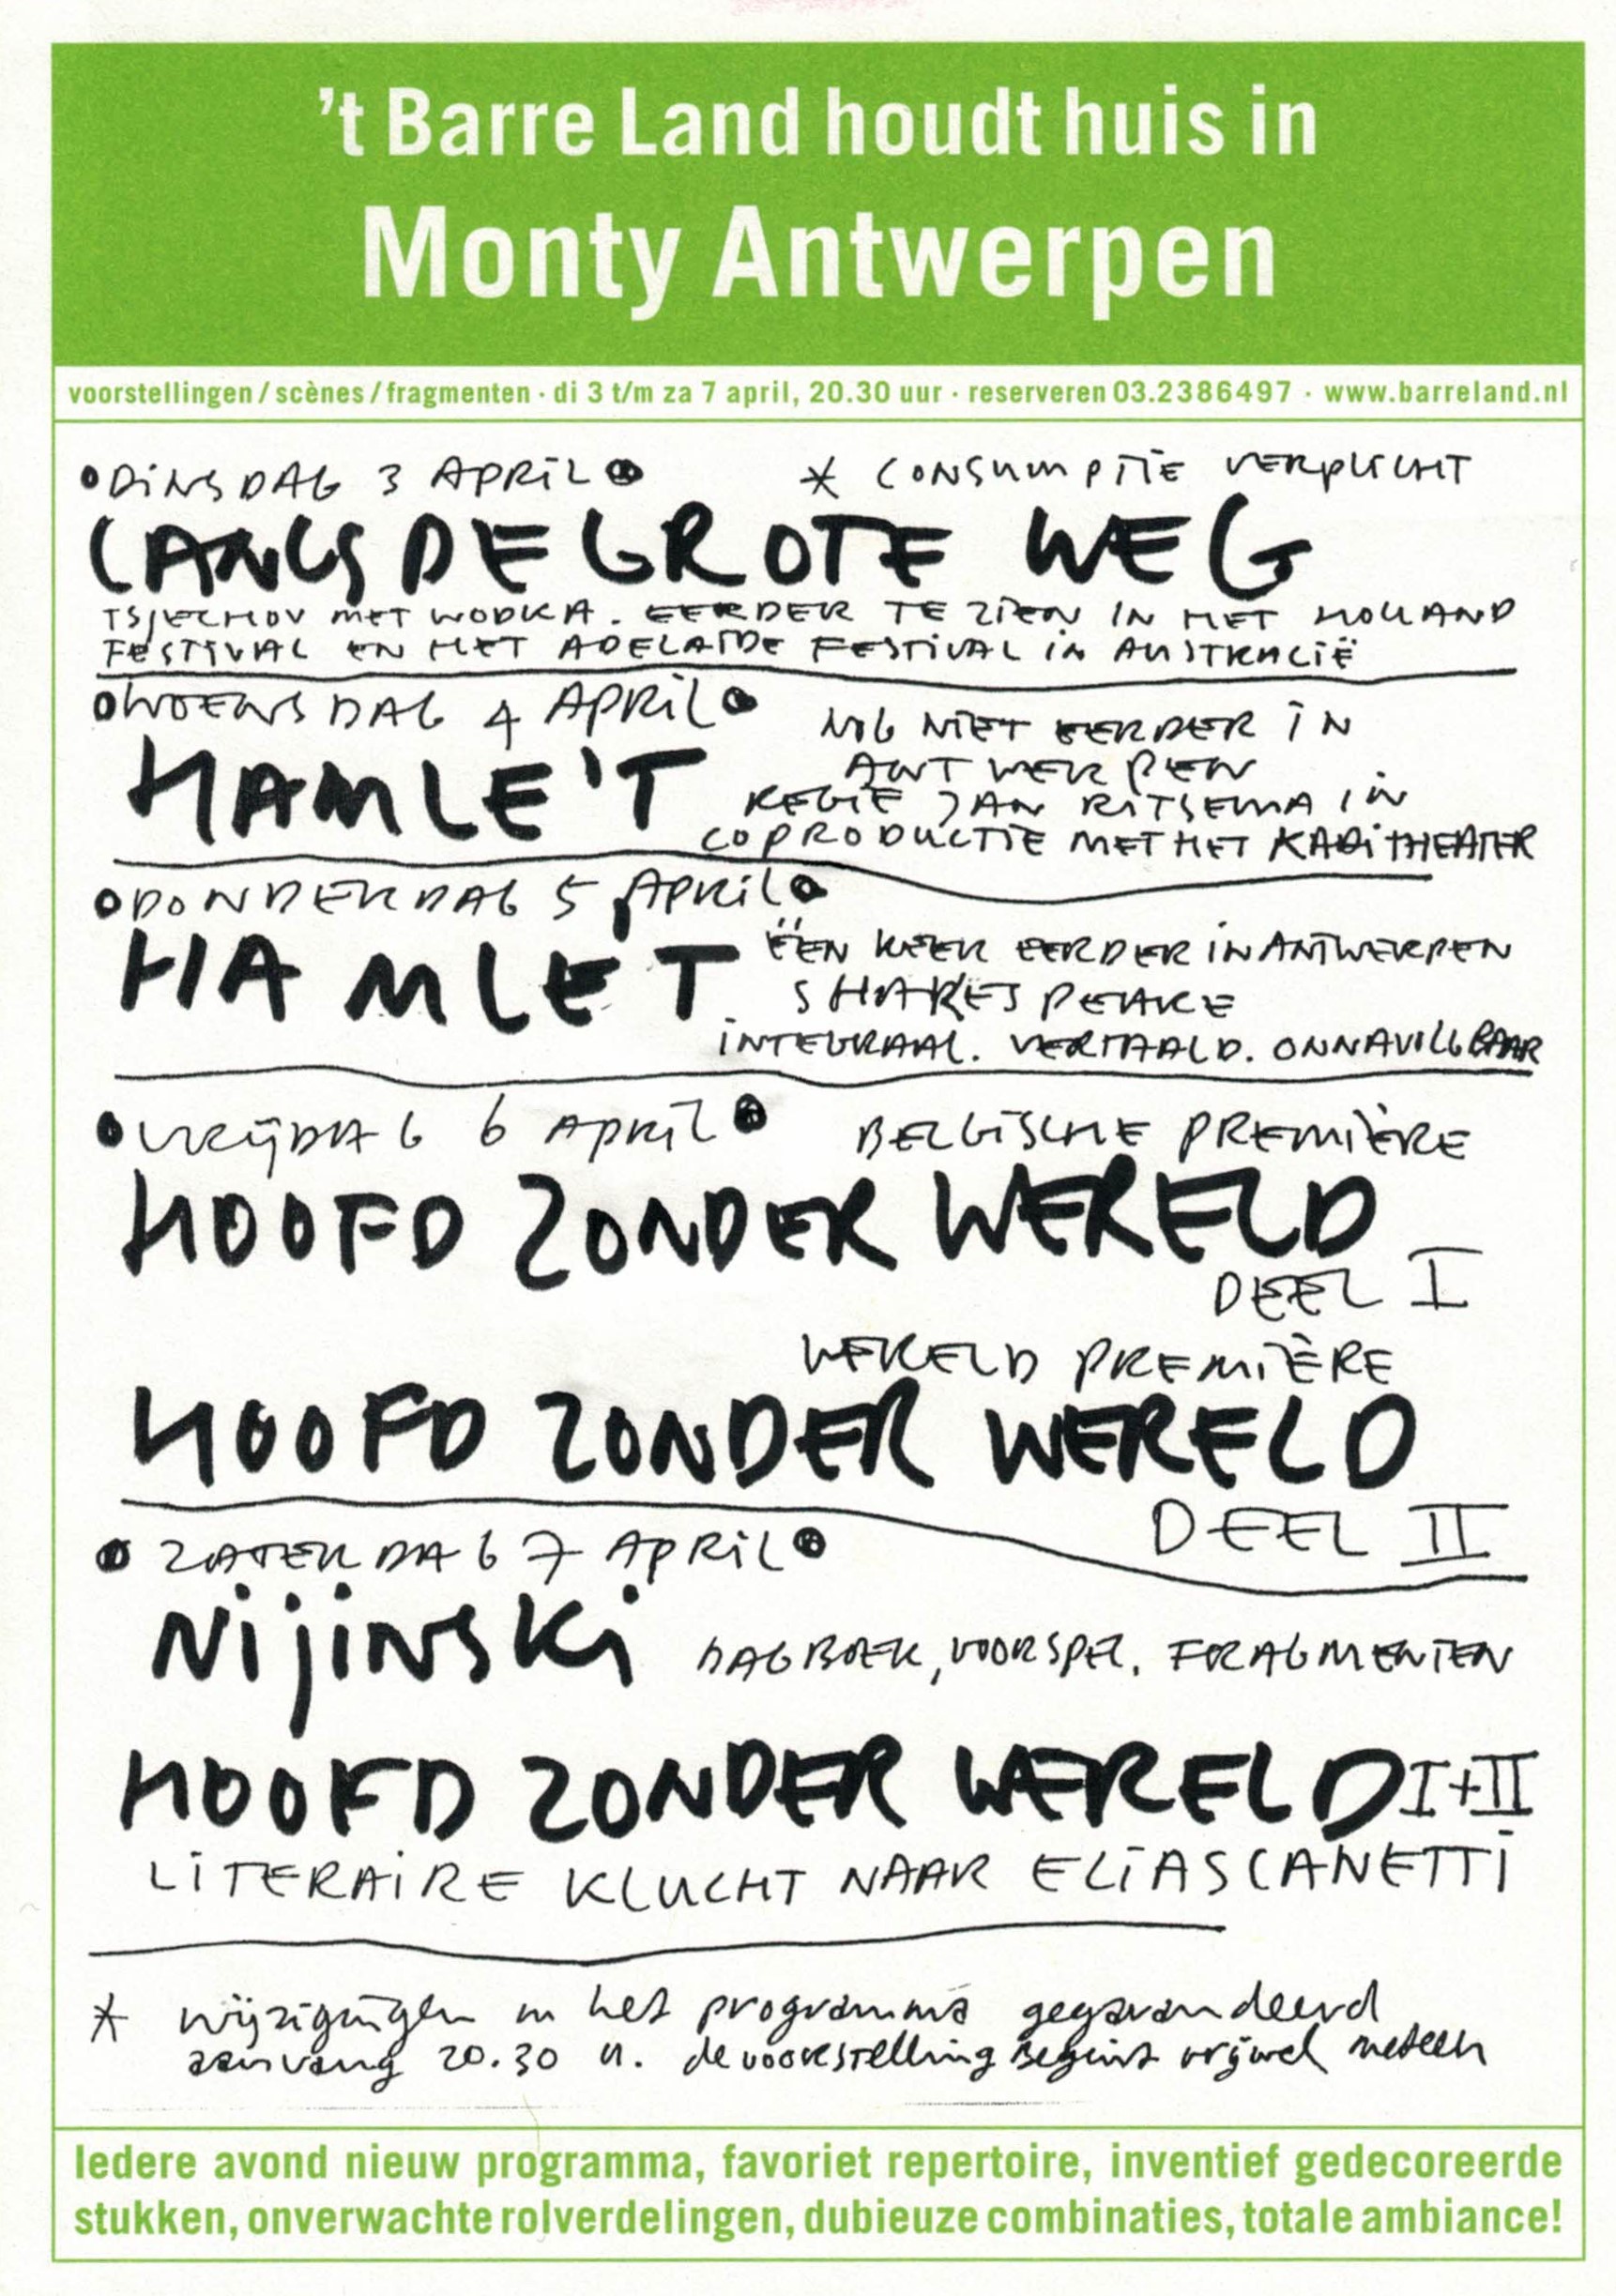 't Barre Land houdt huis in
Monty Antwerpen
voorstellingen / scènes / fragmenten · di 3 t/m za 7 april, 20.30 uur · reserveren 03.2386497 · www.barreland.nl
DINSDAG 3 APRIL * CONSUMPTIE VERPLICHT
LANGS DE GROTE WEG
TSJECHOV MET WODKA. EERDER TE ZIEN IN HET HOLLAND
FESTIVAL EN HET ADELAIDE FESTIVAL IN AUSTRALIË
WOENSDAG 4 APRIL
NOG NIET EERDER IN
ANTWERPEN
HAMLE'T
REGIE JAN RITSEMA IN
COPRODUCTIE MET HET KAAITHEATER
DONDERDAG 5 APRIL
HAMLET
ÉÉN KEER EERDER IN ANTWERPEN
SHAKESPEARE
INTEGRAAL. VERTAALD. ONNAVOLGBAAR
VRIJDAG 6 APRIL BELGISCHE PREMIÈRE
HOOFD ZONDER WERELD
DEEL I
WERELD PREMIÈRE
HOOFD ZONDER WERELD
DEEL II
ZATERDAG 7 APRIL
NIJINSKI DAGBOEK, VOORSPEL, FRAGMENTEN
HOOFD ZONDER WERELD I+II
LITERAIRE KLUCHT NAAR ELIAS CANETTI
* wijzigingen in het programma gegarandeerd
aanvang 20.30 u. de voorstelling begint vrijwel meteen
Iedere avond nieuw programma, favoriet repertoire, inventief gedecoreerde
stukken, onverwachte rolverdelingen, dubieuze combinaties, totale ambiance!